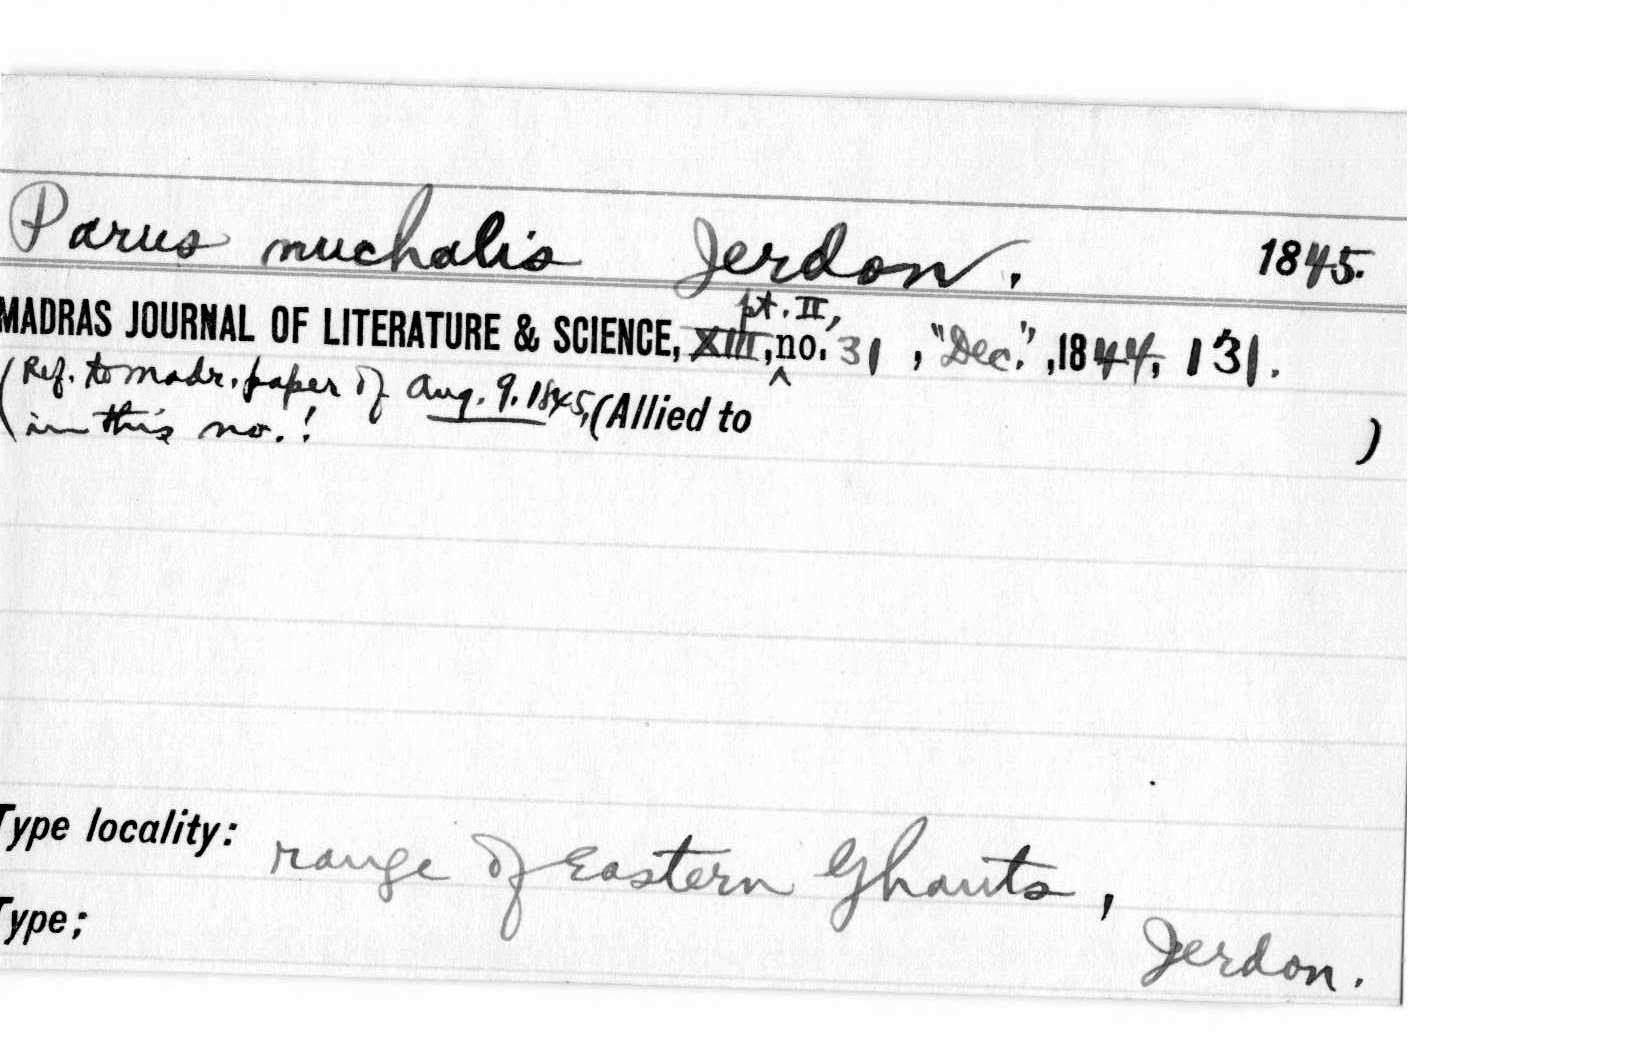 Parus nuchalis Jerdon, 1845.
pt. II,
MADRAS JOURNAL OF LITERATURE & SCIENCE, XIII, no. 31, "Dec.", 1844, 131.
(Ref. to madr. paper of Aug. 9. 1845, (Allied to )
in this no.!
Type locality: range of Eastern Ghauts,
Type; Jerdon.